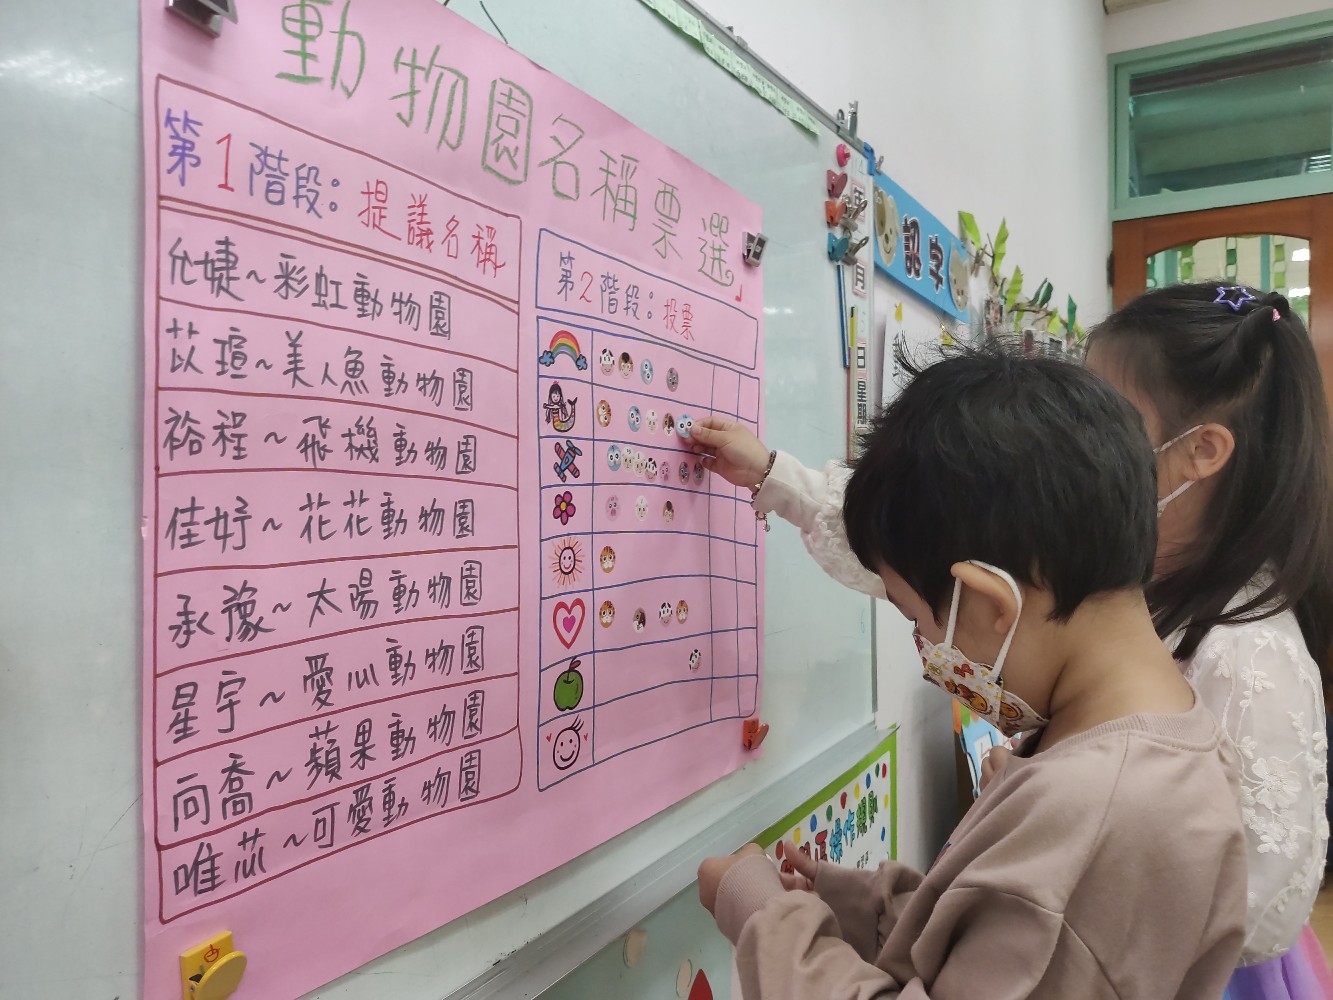 動物園名稱票選
第1階段：提議名稱
允婕～彩虹動物園
苡瑄～美人魚動物園
裕程～飛機動物園
佳妤～花花動物園
承豫～太陽動物園
星宇～愛心動物園
向喬～蘋果動物園
唯芯～可愛動物園
第2階段：投票
認字
月
日
星期
操作規則